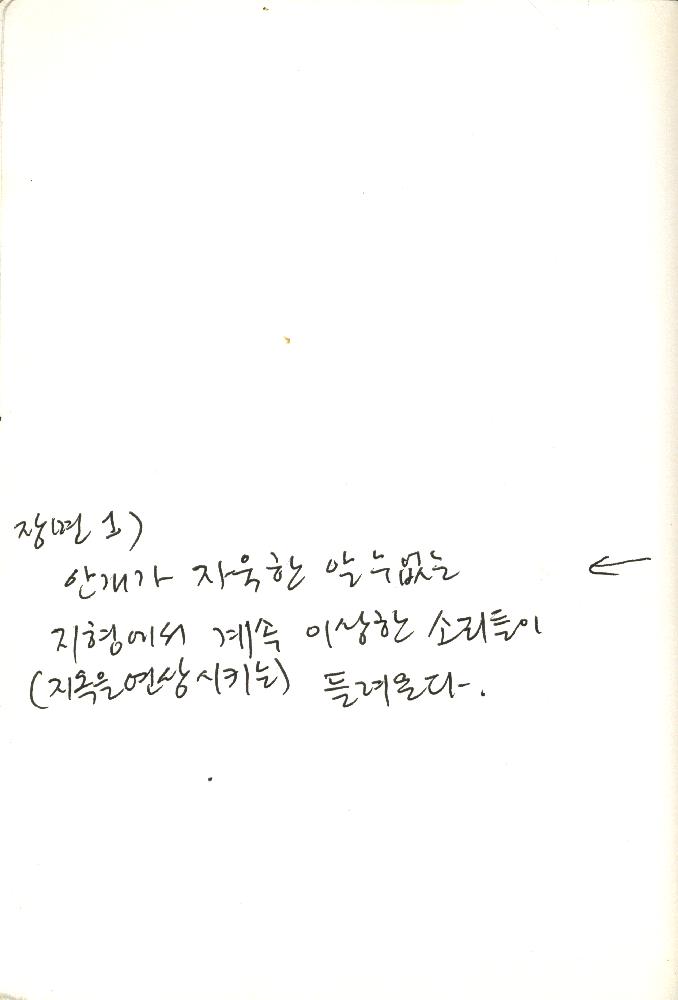 장면 1)
안개가 자욱한 알 수 없는 ←
지형에서 계속 이상한 소리들이
(지옥을 연상시키는) 들려온다.